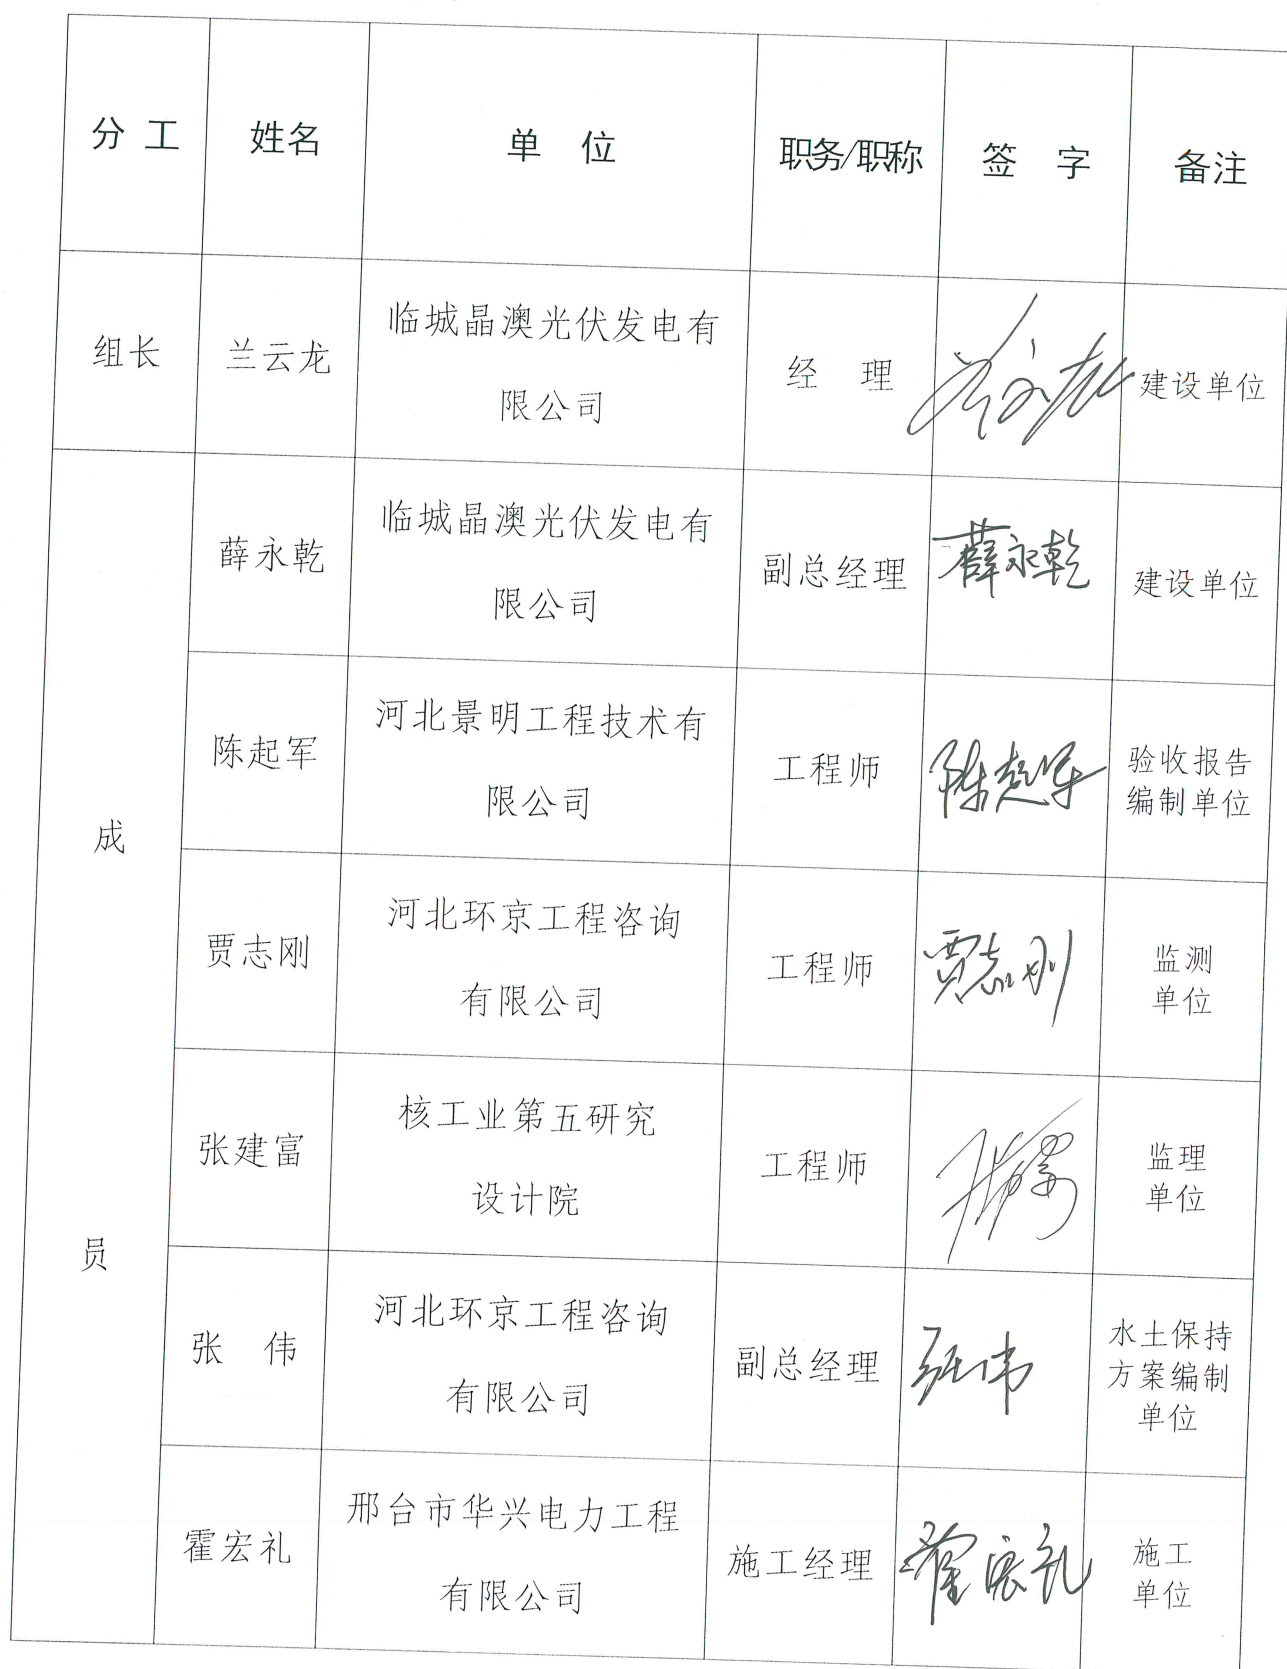 分 工 姓名 单 位 职务/职称 签 字 备注
组长 兰云龙 临城晶澳光伏发电有
限公司 经 理 兰云龙 建设单位
成
员
薛永乾 临城晶澳光伏发电有
限公司 副总经理 薛永乾 建设单位
陈起军 河北景明工程技术有
限公司 工程师 陈起军 验收报告
编制单位
贾志刚 河北环京工程咨询
有限公司 工程师 贾志刚 监测
单位
张建富 核工业第五研究
设计院 工程师 监理
单位
张 伟 河北环京工程咨询
有限公司 副总经理 张伟 水土保持
方案编制
单位
霍宏礼 邢台市华兴电力工程
有限公司 施工经理 霍宏礼 施工
单位